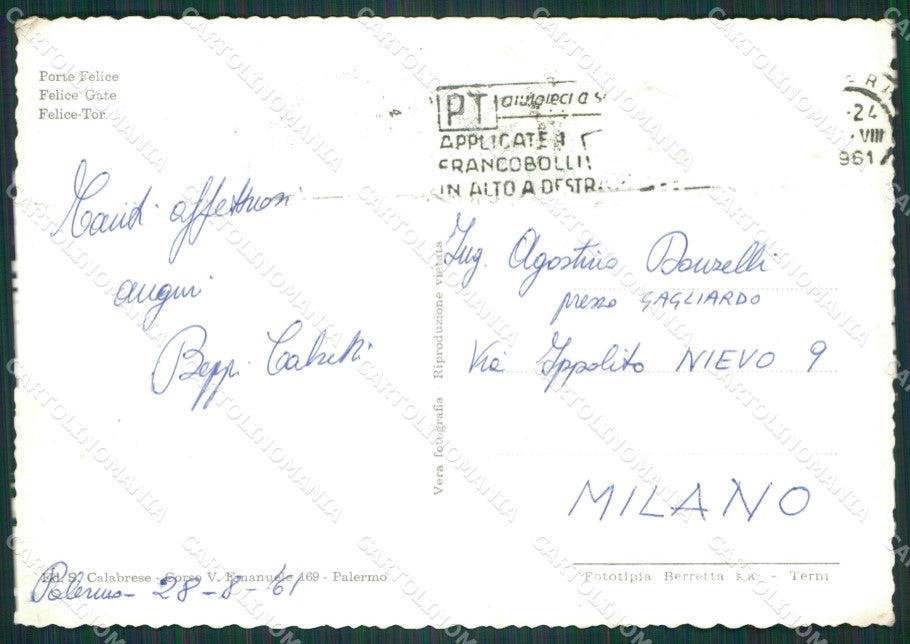 Porte Felice
Felice Gate
Felice-Tor
PT aiutateci a
APPLICATE I
FRANCOBOLLI
IN ALTO A DESTRA
24
VIII
961
affettuosi
auguri
Beppi
Ing. Agostino Donzelli
presso GAGLIARDO
Via Ippolito NIEVO 9
MILANO
Vera fotografia Riproduzione vietata
Ed. S. Calabrese - Corso V. Emanuele 169 - Palermo
Palermo - 28-8-61
Fototipia Berretta - Terni
CARTOLINOMANIA